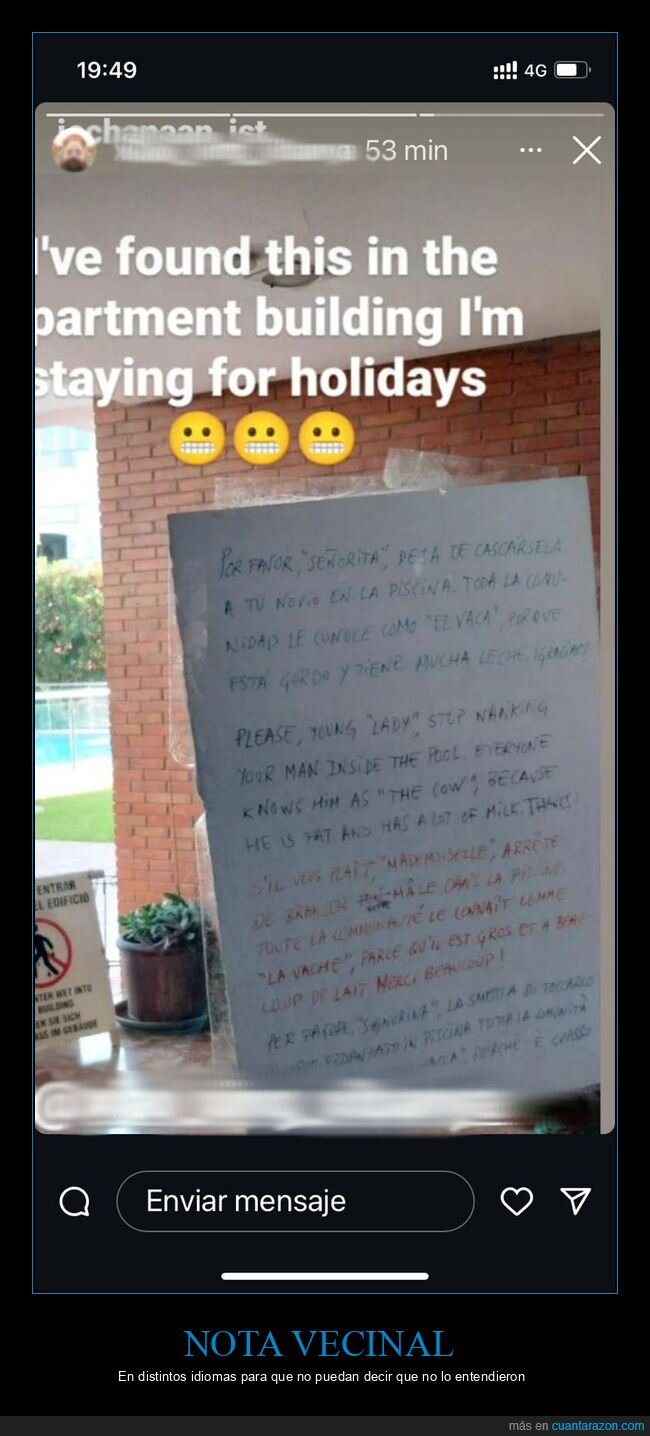 19:49
4G
53 min
I've found this in the
partment building I'm
staying for holidays
POR FAVOR, "SEÑORITA", DEJA DE CASCÁRSELA
A TU NOVIO EN LA PISCINA. TODA LA COMU-
NIDAD LE CONOCE COMO "EL VACA", PORQUE
ESTÁ GORDO Y TIENE MUCHA LECHE. ¡GRACIAS!
PLEASE, YOUNG "LADY", STOP WANKING
YOUR MAN INSIDE THE POOL. EVERYONE
KNOWS HIM AS "THE COW", BECAUSE
HE IS FAT AND HAS A LOT OF MILK. THANKS!
S'IL VOUS PLAÎT, "MADEMOISELLE", ARRÊTE
DE BRANLER MÂLE DANS LA PISCINE.
TOUTE LA COMMUNAUTÉ LE CONNAÎT COMME
"LA VACHE", PARCE QU'IL EST GROS ET A BEAU-
COUP DE LAIT. MERCI BEAUCOUP!
PER FAVORE, "SIGNORINA", LA SMETTA DI TOCCARLO
FIDANZATO IN PISCINA. TUTTA LA COMUNITÀ
VACCA", PERCHÉ È GRASSO
ENTRAR
EL EDIFICIO
NTER WET INTO
BUILDING
EN SIE SICH
ASS IM GEBÄUDE
Enviar mensaje
NOTA VECINAL
En distintos idiomas para que no puedan decir que no lo entendieron
más en cuantarazon.com